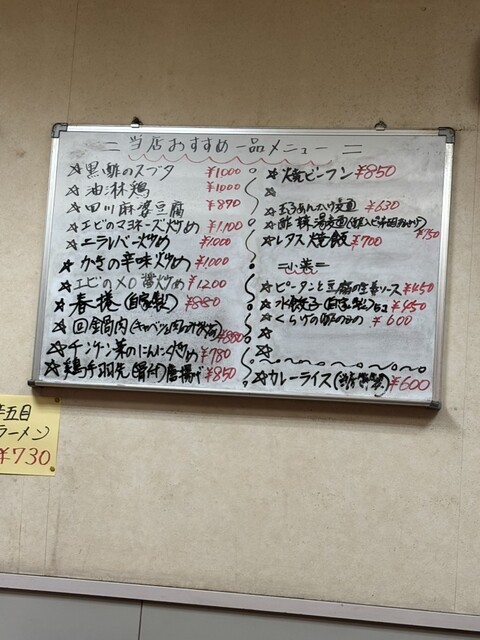 = 当店おすすめ一品メニュー =
☆黒酢のスブタ ¥1000
☆油淋鶏 ¥1000
☆四川麻婆豆腐 ¥870
☆エビのマヨネーズ炒め ¥1,100
☆ニラレバー炒め ¥1,000
☆かきの辛味炒め ¥1,000
☆エビのXO醤炒め ¥1200
☆春捲(自家製) ¥880
☆回鍋肉 ¥880
☆チンゲン菜のにんにく炒め ¥780
☆鶏手羽先(骨付)唐揚げ ¥850
☆焼ビーフン ¥850
☆
☆玉子あんかけ麺 ¥630
☆酸辣湯麺 ¥750
☆レタス焼飯 ¥700
=小菜=
☆ピータンと豆腐の生姜ソース ¥450
☆水餃子(自家製)5コ ¥450
☆くらげの酢のもの ¥600
☆
☆
☆カレーライス ¥600
五目
ラーメン
¥730